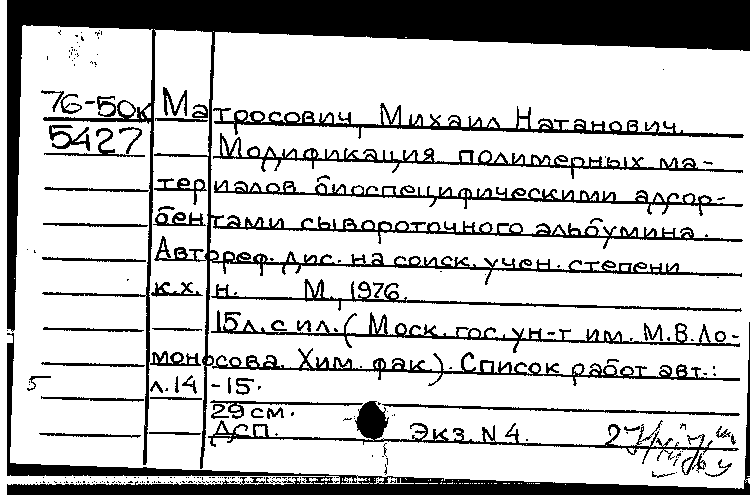 76-50к Матросович, Михаил Натанович.
5427 Модификация полимерных ма-
териалов биоспецифическими адсор-
бентами сывороточного альбумина.
Автореф. дис. на соиск. учен. степени
к.х.н. М., 1976.
15 л. с ил. (Моск. гос. ун-т им. М.В. Ло-
моносова. Хим. фак.). Список работ авт.:
5 л. 14-15.
29 см.
Дсп. Экз. N 4.